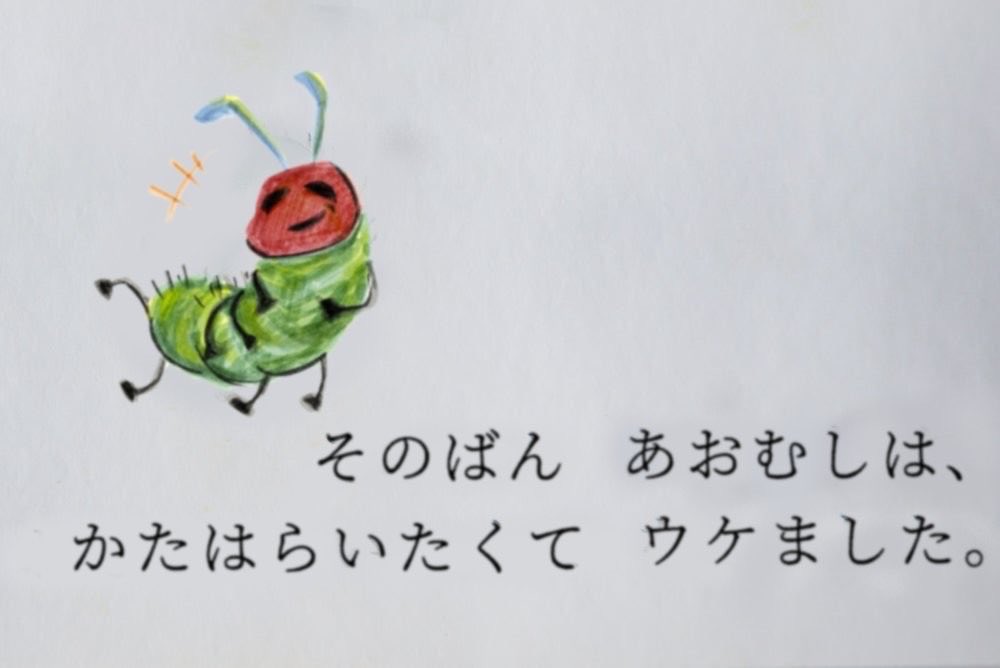 そのばん　あおむしは、
かたはらいたくて　ウケました。